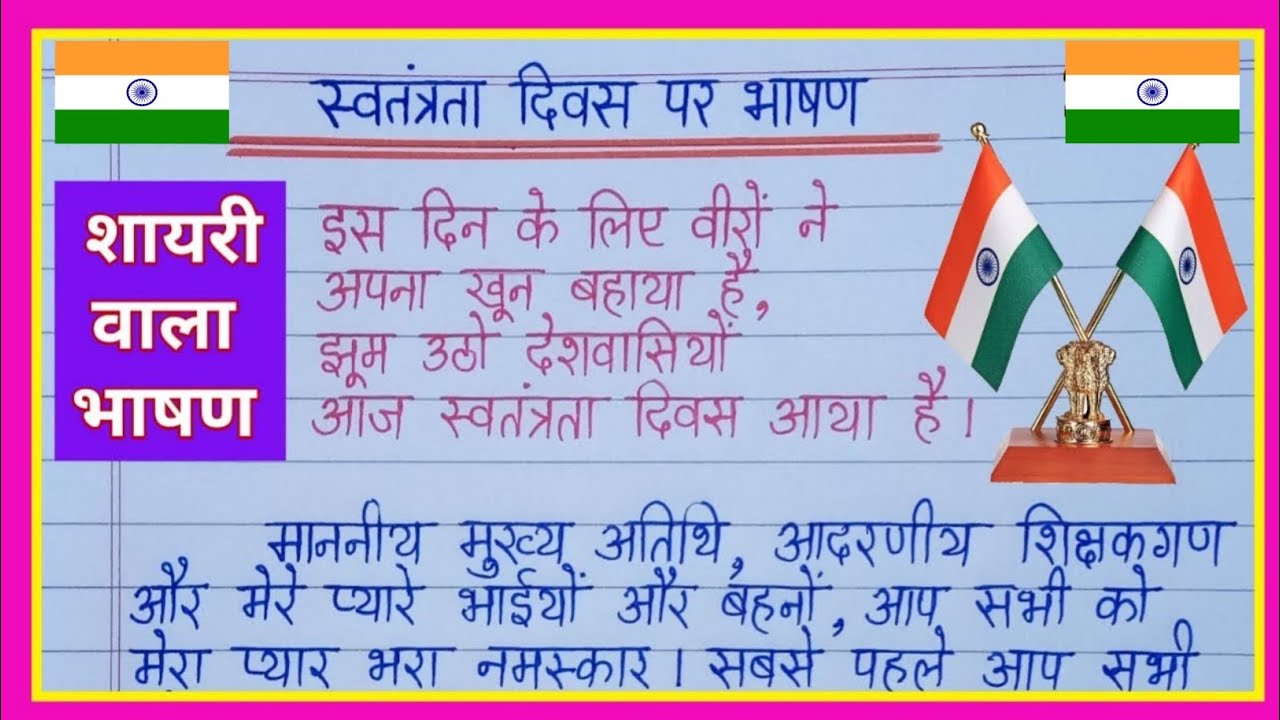 स्वतंत्रता दिवस पर भाषण
शायरी
वाला
भाषण
इस दिन के लिए वीरों ने
अपना खून बहाया है,
झूम उठो देशवासियों
आज स्वतंत्रता दिवस आया है।
माननीय मुख्य अतिथि, आदरणीय शिक्षकगण
और मेरे प्यारे भाईयों और बहनों, आप सभी को
मेरा प्यार भरा नमस्कार। सबसे पहले आप सभी